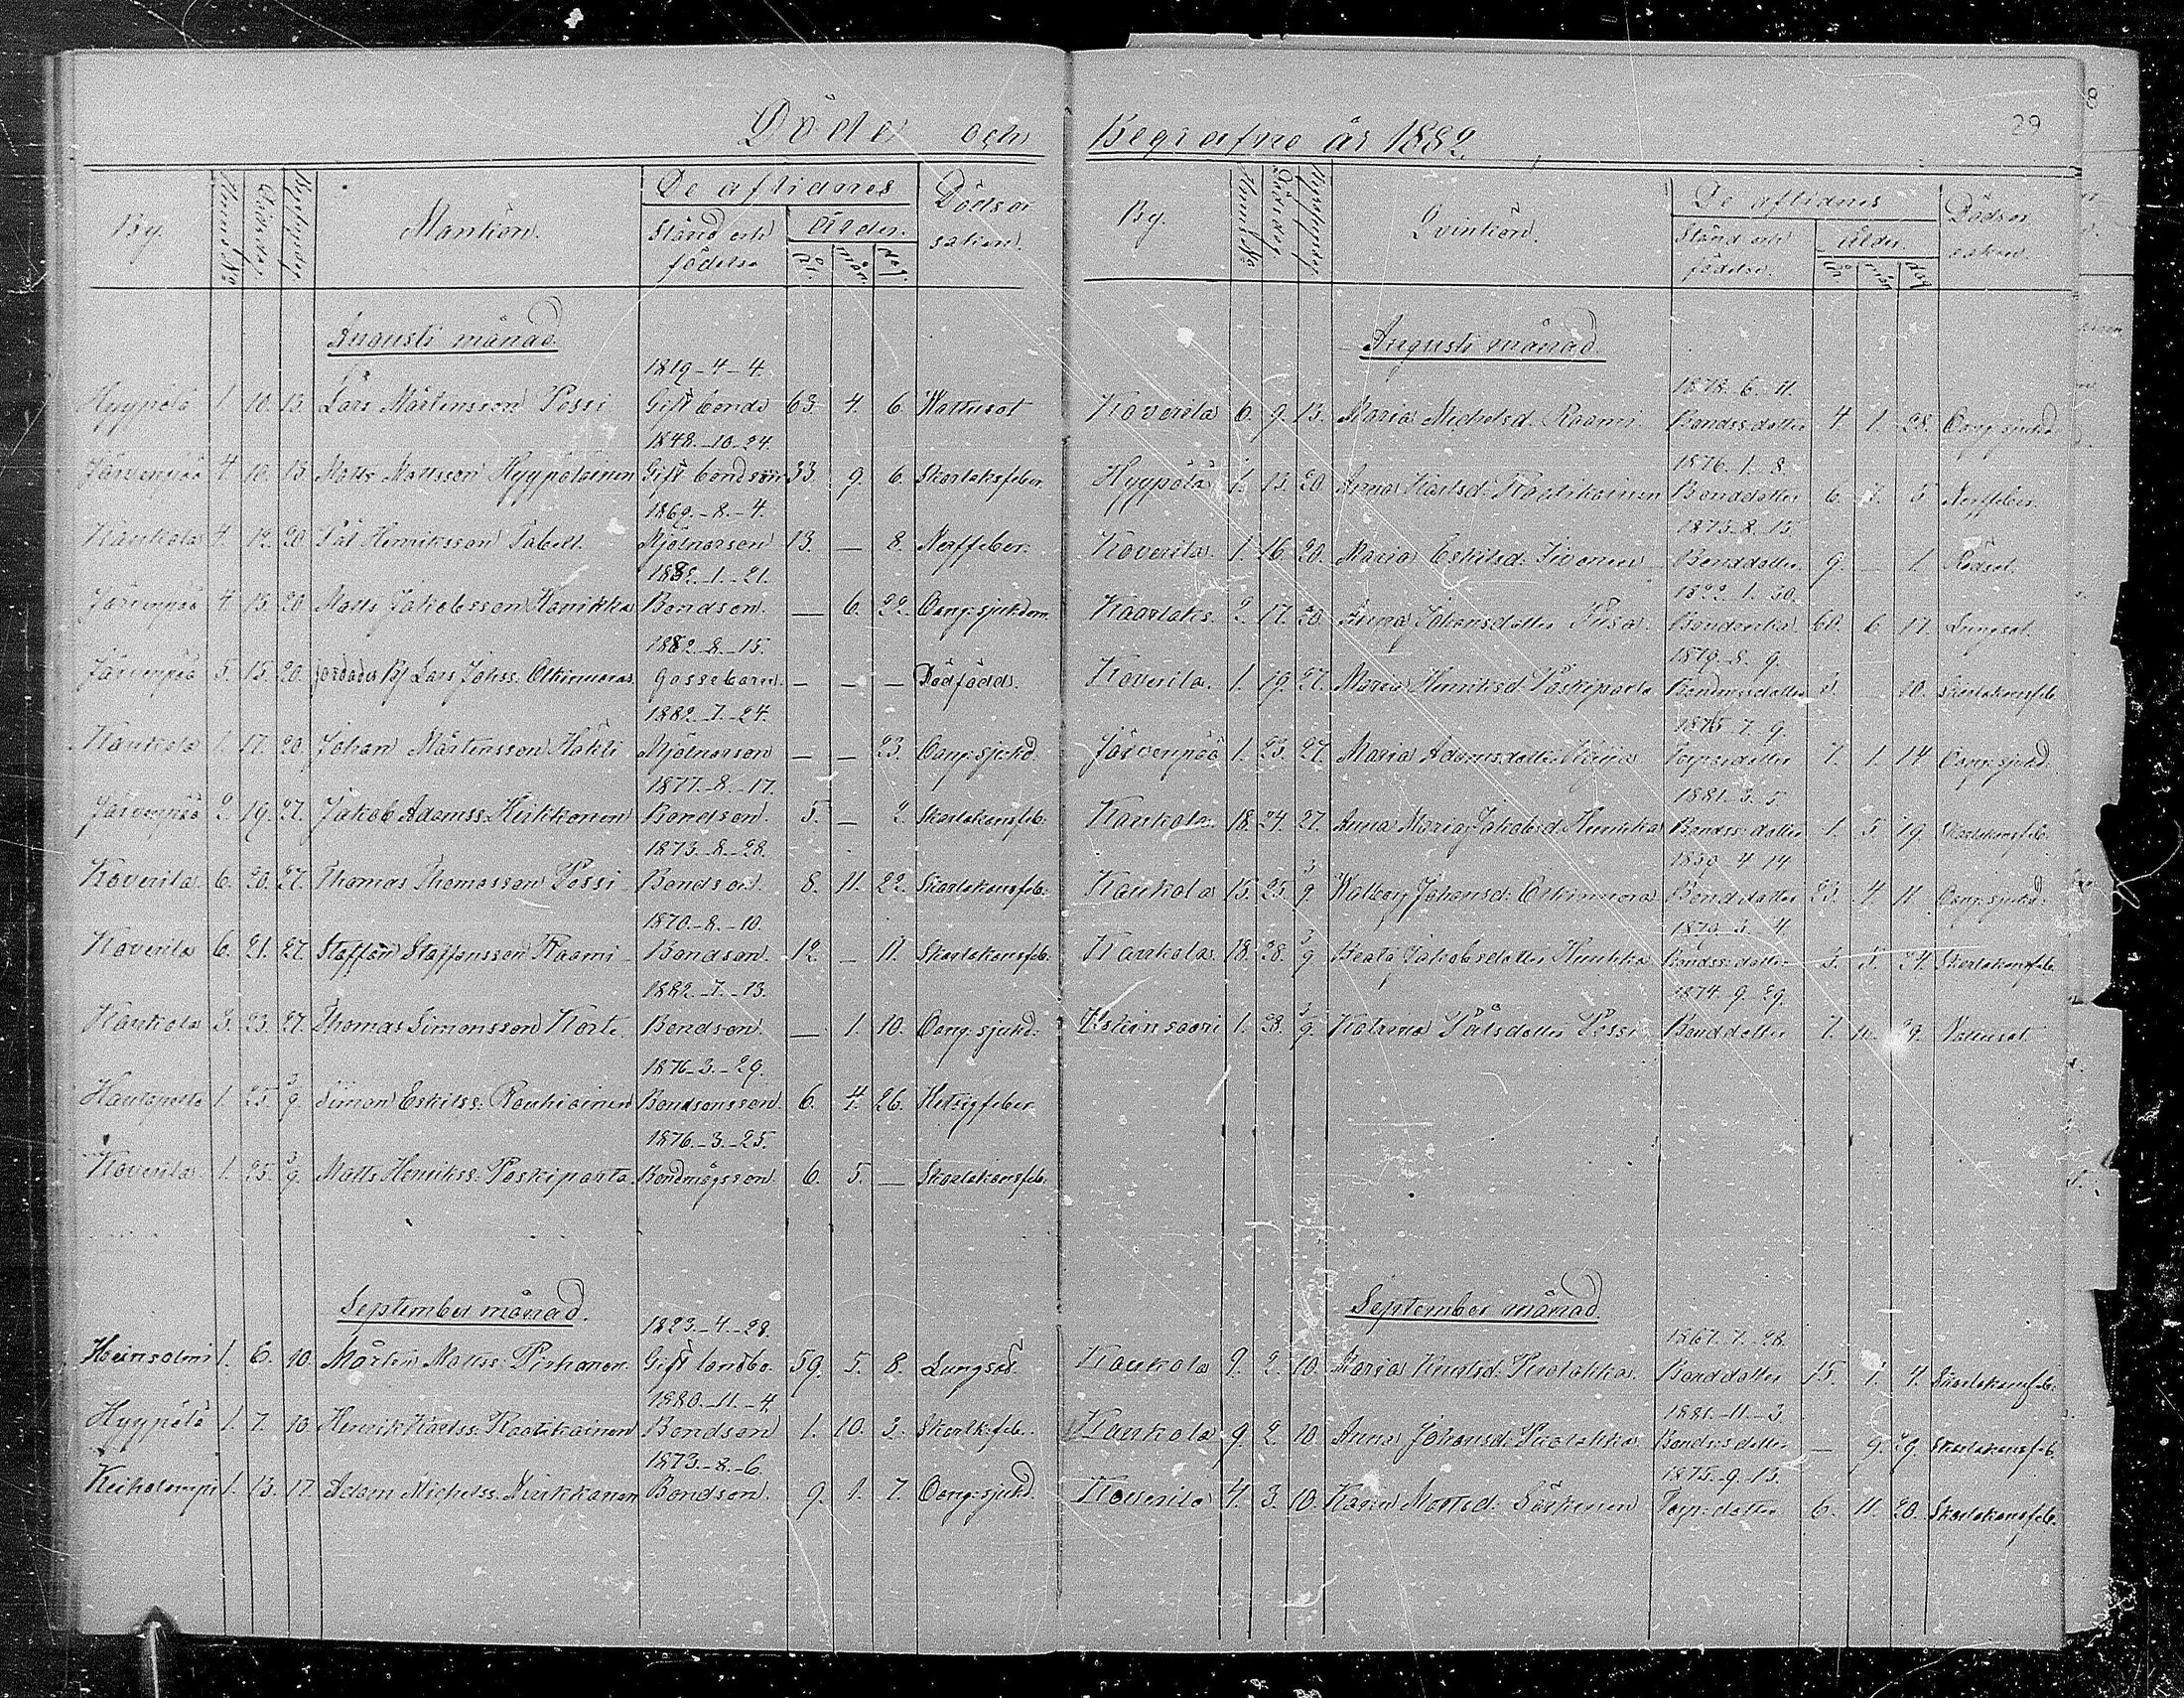 Döde och
By.
Hemms No
Dödsdag.
Begrfngsdag.
Mankön.
De aflidnes
Stånd och födelse
Ålder.
år.
mån.
dag.
Dödsor
saken.
Augusti månad.
1819-4-4.
Hyypölä 1. 10. 13. Lars Mårtensson Pössi Gift bonde 63. 4. 6. Wattusot
1848.-10-24.
Järvenpää 4. 10. 13. Matts Mattsson Hyypöläinen Gift bondson 33. 9. 6. Skarlaksfeber
1869.-8.-4.
Kaukola 4. 12. 20. Pål Henriksson Tabell. Mjölnarson 13. — 8. Nerffeber.
1882.-1.-21.
Järvenpää 4. 15. 20. Matts Jakobsson Hanikka Bondson. — 6. 22. Oang: sjukdom.
1882.-8.-15.
Järvenpää 5. 15. 20. Lars Johss. Gossebarn. — — — Dödfödd.
1882.-7.-24.
Kaukola 1. 17. 20. Johan Mårtensson Häkli Mjölnarson — — 23. Oang: sjukd:
1877.-8.-17.
Järvenpää 2. 19. 27. Jakob Adamss: Hirkkonen Bondson. 5. — 2. Skarlakansfeb:
1873.-8.-28.
Koverila 6. 20. 27. Thomas Thomasson Pössi Bondson. 8. 11. 22. Skarlakansfeb:
1870.-8.-10.
Koverila 6. 21. 27. Staffan Staffansson Raami Bondson. 12. — 11. Skarlakansfeb:
1882.-7.-13.
Kaukola 3. 23. 27. Thomas Simonsson Korte. Bondson. — 1. 10. Oang: sjukd:
1876-3.-29.
1. 25. 3/9. Simon Eskilss: Roukiainen Bondsonsson. 6. 4. 26. Hetsigfeber.
1876.-3.-25.
Koverila 1. 25. 3/9. Matts Henrikss: Paskiparta. Bondmågsson. 6. 5. — Skarlakansfeb:
September månad.
1823.-4.-28.
1. 6. 10. Mårten Mattss: Pirhonen. Gift landbo. 59. 5. 8. Lungsot.
1880.-11.-4.
Hyypölä 1. 7. 10. Henrik Karlss: Raatikainen Bondson 1. 10. 3. Skarlk: feb:
1873.-8.-6.
1. 13. 17. Adam Michelss. Bondson. 9. 1. 7. Oang: sjukd.
29
Begrafne år 1882.
By.
Hemms No
Dödsdag
Begrfngsdag
Qvinkön.
De aflidnes
Stånd och födelse.
Ålder
år
mån
dag
Dödsor
saken.
Augusti månad.
1878.-6.-11.
Koverila 6. 9. 13. Maria Michelsd. Raami. Bondss: dotter 4. 1. 28. Oang: sjukd:
1876.-1.-8.
Hyypölä 1. 13. 20. Anna Karlsd: Raatikainen Bonddotter 6. 7. 5. Nerffeber.
1873-8.-15.
Koverila 1. 16. 20. Maria Eskilsd: Bonddotter 9. — 1. Rödsot.
1822.-1.-30.
Kaarlaks. 2. 17. 20. Anna Johansdotter Pusa. Bondenka 60. 6. 17. Lungsot.
1879.-8.-9.
Koverila. 1. 19. 27. Maria Henriksd: Paskiparta 3. — 10. Skarlakansfeb:
1875.-7.-9.
Järvenpää 1. 23. 27. Maria Adamsdotter 7. 1. 14. Oang: sjukd.
1881.-3.-5.
Kaukola. 18. 24. 27. Anna Maria Jakobsd. Hunkka Bondss: dotter 1. 5. 19. Skarlakansfeb:
1859-4-14.
Kaukola 15. 25. 3/9. Walborg Johansd: Bonddotter 23. 4. 11. Oang: sjukd:
1879.-3.-4.
Kaukola 18. 28. 3/9 Beata Jakobsdotter Hunkka Bondss: dotter 3. 5. 24. Skarlakansfeb.
1874.-9.-29.
1. 28. 3/9. Katrina Pålsdotter Pössi Bonddotter 7. 10. 29. Wattusot
September månad.
1867.-7.-28.
Kaukola 9. 2. 10. Maria Bonddotter 15. 1. 4. Skarlakansfeb:
1881.-11.-3.
Kaukola 9. 2. 10. Anna Johansd: Bondss: dotter — 9. 29. Skarlakansfeb.
1875.-9.-13.
Koverila 4. 3. 10. Karin Mattsd: Särkinen Torp: dotter 6. 11. 20. Skarlakansfeb.